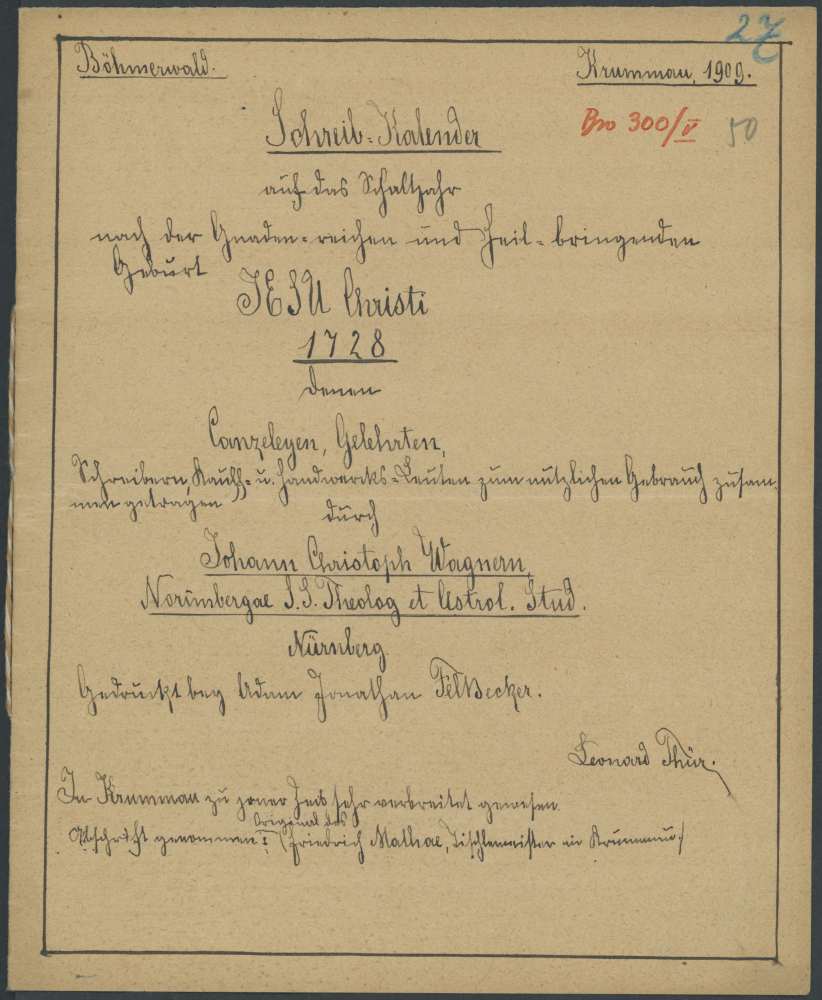 27
Böhmerwald.
Krummau, 1909.
Bro 300/V 50
Schreib-Kalender
auf das Schaltjahr
nach der Gnaden-reichen und Heil-bringenden
Geburt
JESU Christi
1728
denen
Canzeleyen, Gelehrten,
Schreibern, Kauff- u. Handwercks-Leuten zum nützlichen Gebrauch zusam-
men getragen
durch
Johann Christoph Wagnern,
Norimbergae S.S. Theolog et Astrol. Stud.
Nürnberg.
Gedruckt bey Adam Jonathan Felßecker.
Leonard Thür.
In Krummau zu jener Zeit sehr verbreitet gewesen.
Original des
Abschrift genommen: (Friedrich Mathae, Tischlermeister in Krummau)